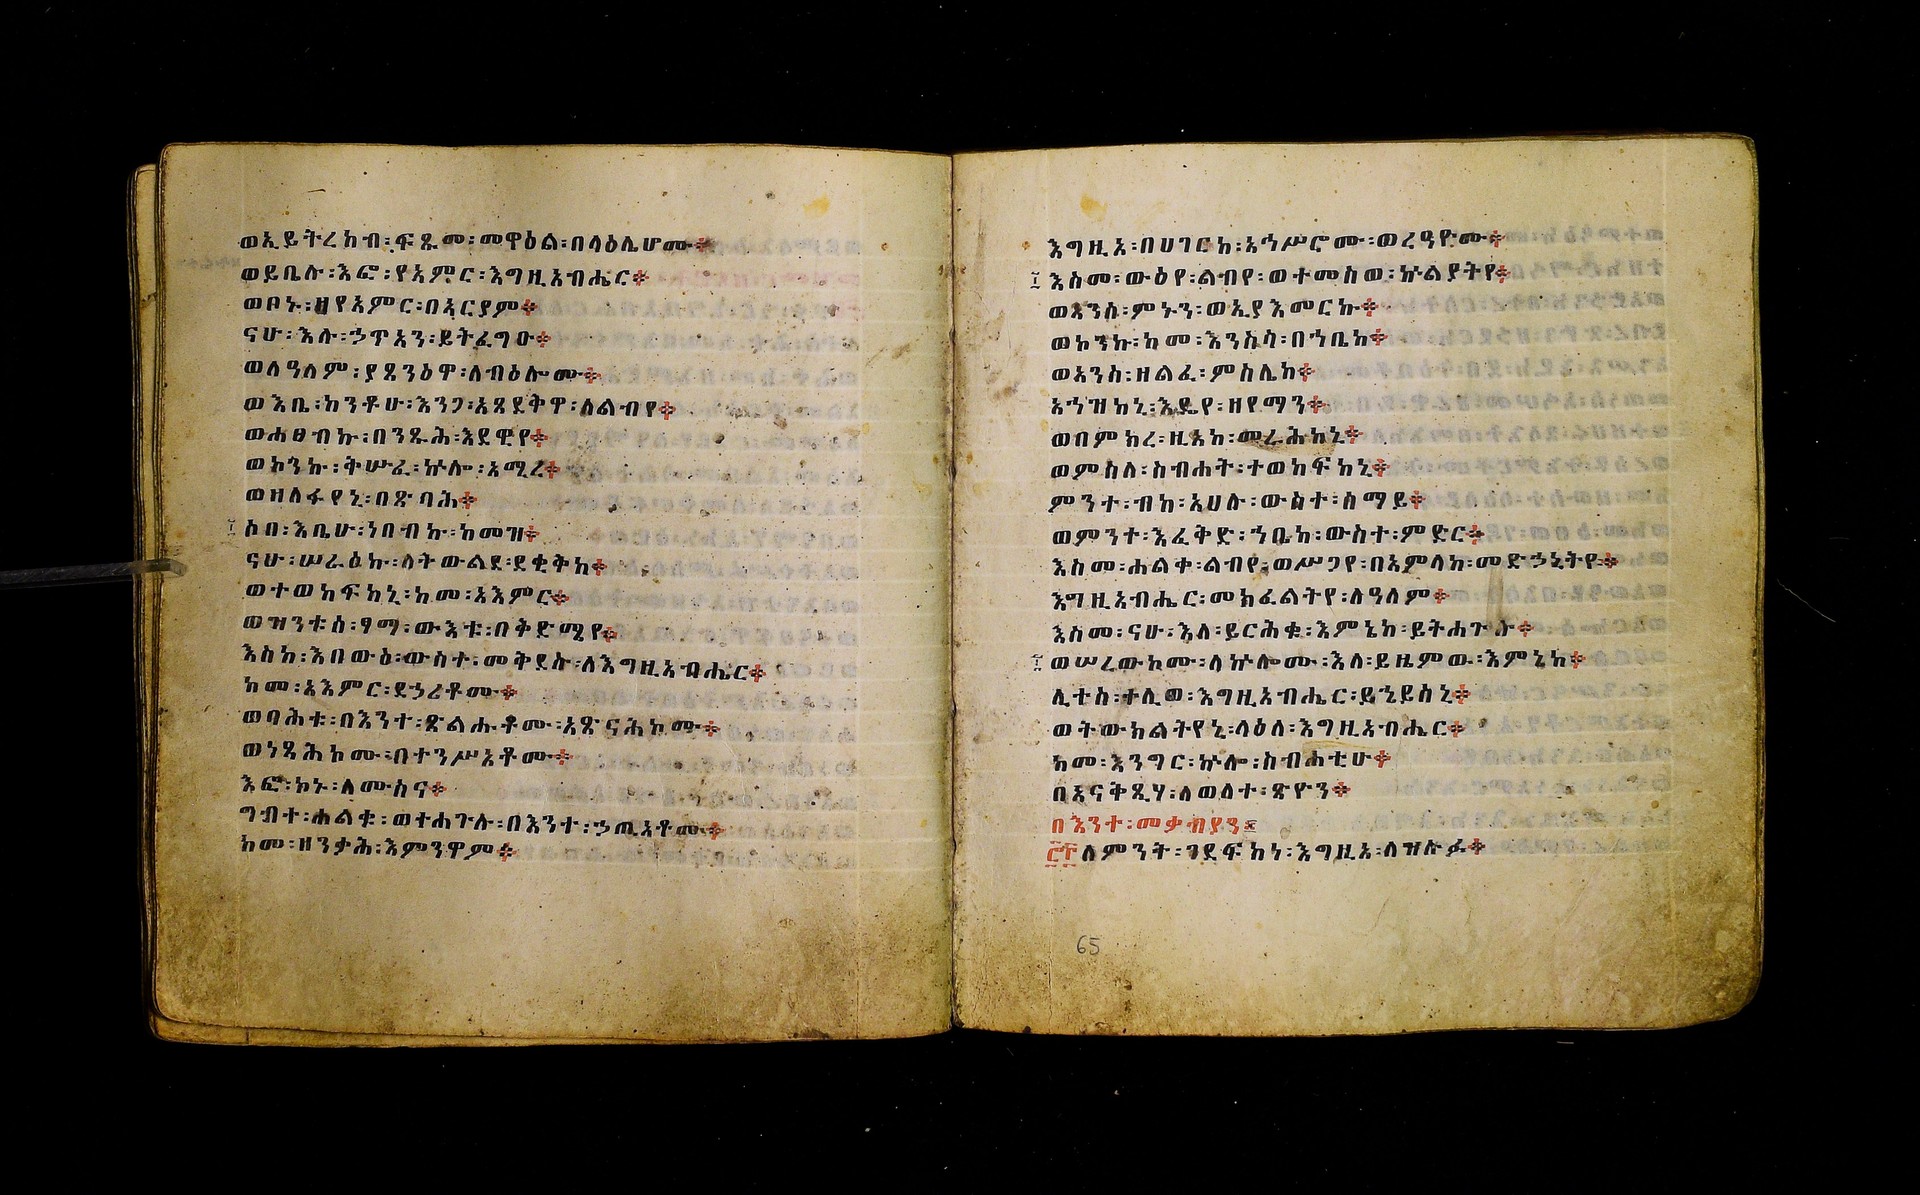 ወኢይትረከብ፡ፍጹመ፡መዋዕል፡በላዕሌሆሙ፨
ወይቤሉ፡እፎ፡የአምር፡እግዚአብሔር፨
ወቦኑ፡ዘየአምር፡በአርያም፨
ናሁ፡እሉ፡ኃጥአን፡ይትፌግዑ፨
ወለዓለም፡ያጸንዕዋ፡ለብዕሎሙ፨
ወእቤ፡ከንቶሁ፡እንጋ፡አጸደቅዋ፡ለልብየ፨
ወሐፀብኩ፡በንጹሕ፡እደዊየ፨
ወኮንኩ፡ቅሡፈ፡ኵሎ፡አሚረ፨
ወዘለፋየኒ፡በጽባሕ፨
፲ ሶበ፡እቤሁ፡ነበብኩ፡ከመዝ፨
ናሁ፡ሠራዕኩ፡ለትውልደ፡ደቂቅከ፨
ወተወከፍከኒ፡ከመ፡አእምር፨
ወዝንቱስ፡ፃማ፡ውእቱ፡በቅድሜየ፨
እስከ፡እበውዕ፡ውስተ፡መቅደሱ፡ለእግዚአብሔር፨
ከመ፡አእምር፡ደኃሪቶሙ፨
ወባሕቱ፡በእንተ፡ጽልሑቶሙ፡አጽናሕኮሙ፨
ወነጻሕኮሙ፡በተንሥአቶሙ፨
እፎ፡ኮኑ፡ለሙስና፨
ግብተ፡ሐልቁ፡ወተሐጕሉ፡በእንተ፡ኃጢአቶሙ፨
ከመ፡ዘንቃሕ፡እምንዋም፨
እግዚአ፡በሀገርከ፡አኅሥሮሙ፡ወረዓዮሙ፨
፲ እስመ፡ውዕየ፡ልብየ፡ወተመስወ፡ኵልያትየ፨
ወአንሰ፡ምኑን፡ወኢያእመርኩ፨
ወኮንኩ፡ከመ፡እንስሳ፡በኀቤከ፨
ወአንሰ፡ዘልፈ፡ምስሌከ፨
አኀዝከኒ፡እዴየ፡ዘየማን፨
ወበምክረ፡ዚአከ፡መራሕከኒ፨
ወምስለ፡ስብሐት፡ተወከፍከኒ፨
ምንተ፡ብከ፡አሀሉ፡ውስተ፡ሰማይ፨
ወምንተ፡እፈቅድ፡ኀቤከ፡ውስተ፡ምድር፨
እስመ፡ሐልቀ፡ልብየ፡ወሥጋየ፡በአምላከ፡መድኃኒትየ፨
እግዚአብሔር፡መክፈልትየ፡ለዓለም፨
እስመ፡ናሁ፡እለ፡ይርሕቁ፡እምኔከ፡ይትሐጐሉ፨
፲ ወሠረውኮሙ፡ለኵሎሙ፡እለ፡ይዜምው፡እምኔከ፨
ሊተሰ፡ተሊወ፡እግዚአብሔር፡ይኄይሰኒ፨
ወትውክልትየኒ፡ላዕለ፡እግዚአብሔር፨
ከመ፡እንግር፡ኵሎ፡ስብሐቲሁ፨
በአናቅጺሃ፡ለወለተ፡ጽዮን፨
በእንተ፡መቃብያን፨
፸፫ ለምንት፡ገደፍከነ፡እግዚአ፡ለዝሉፉ፨
65